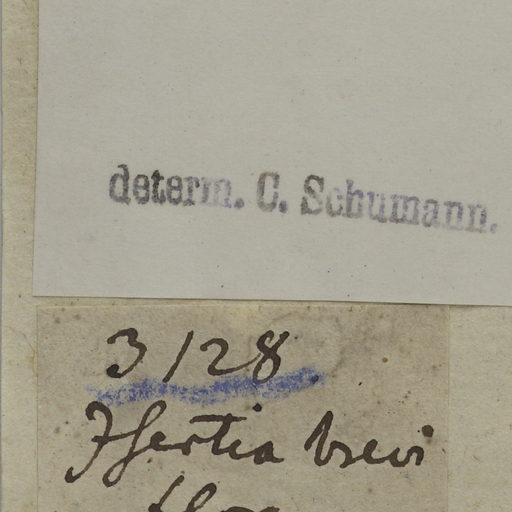 determ. C. Schumann.
3128.
Isertia brevi
flora